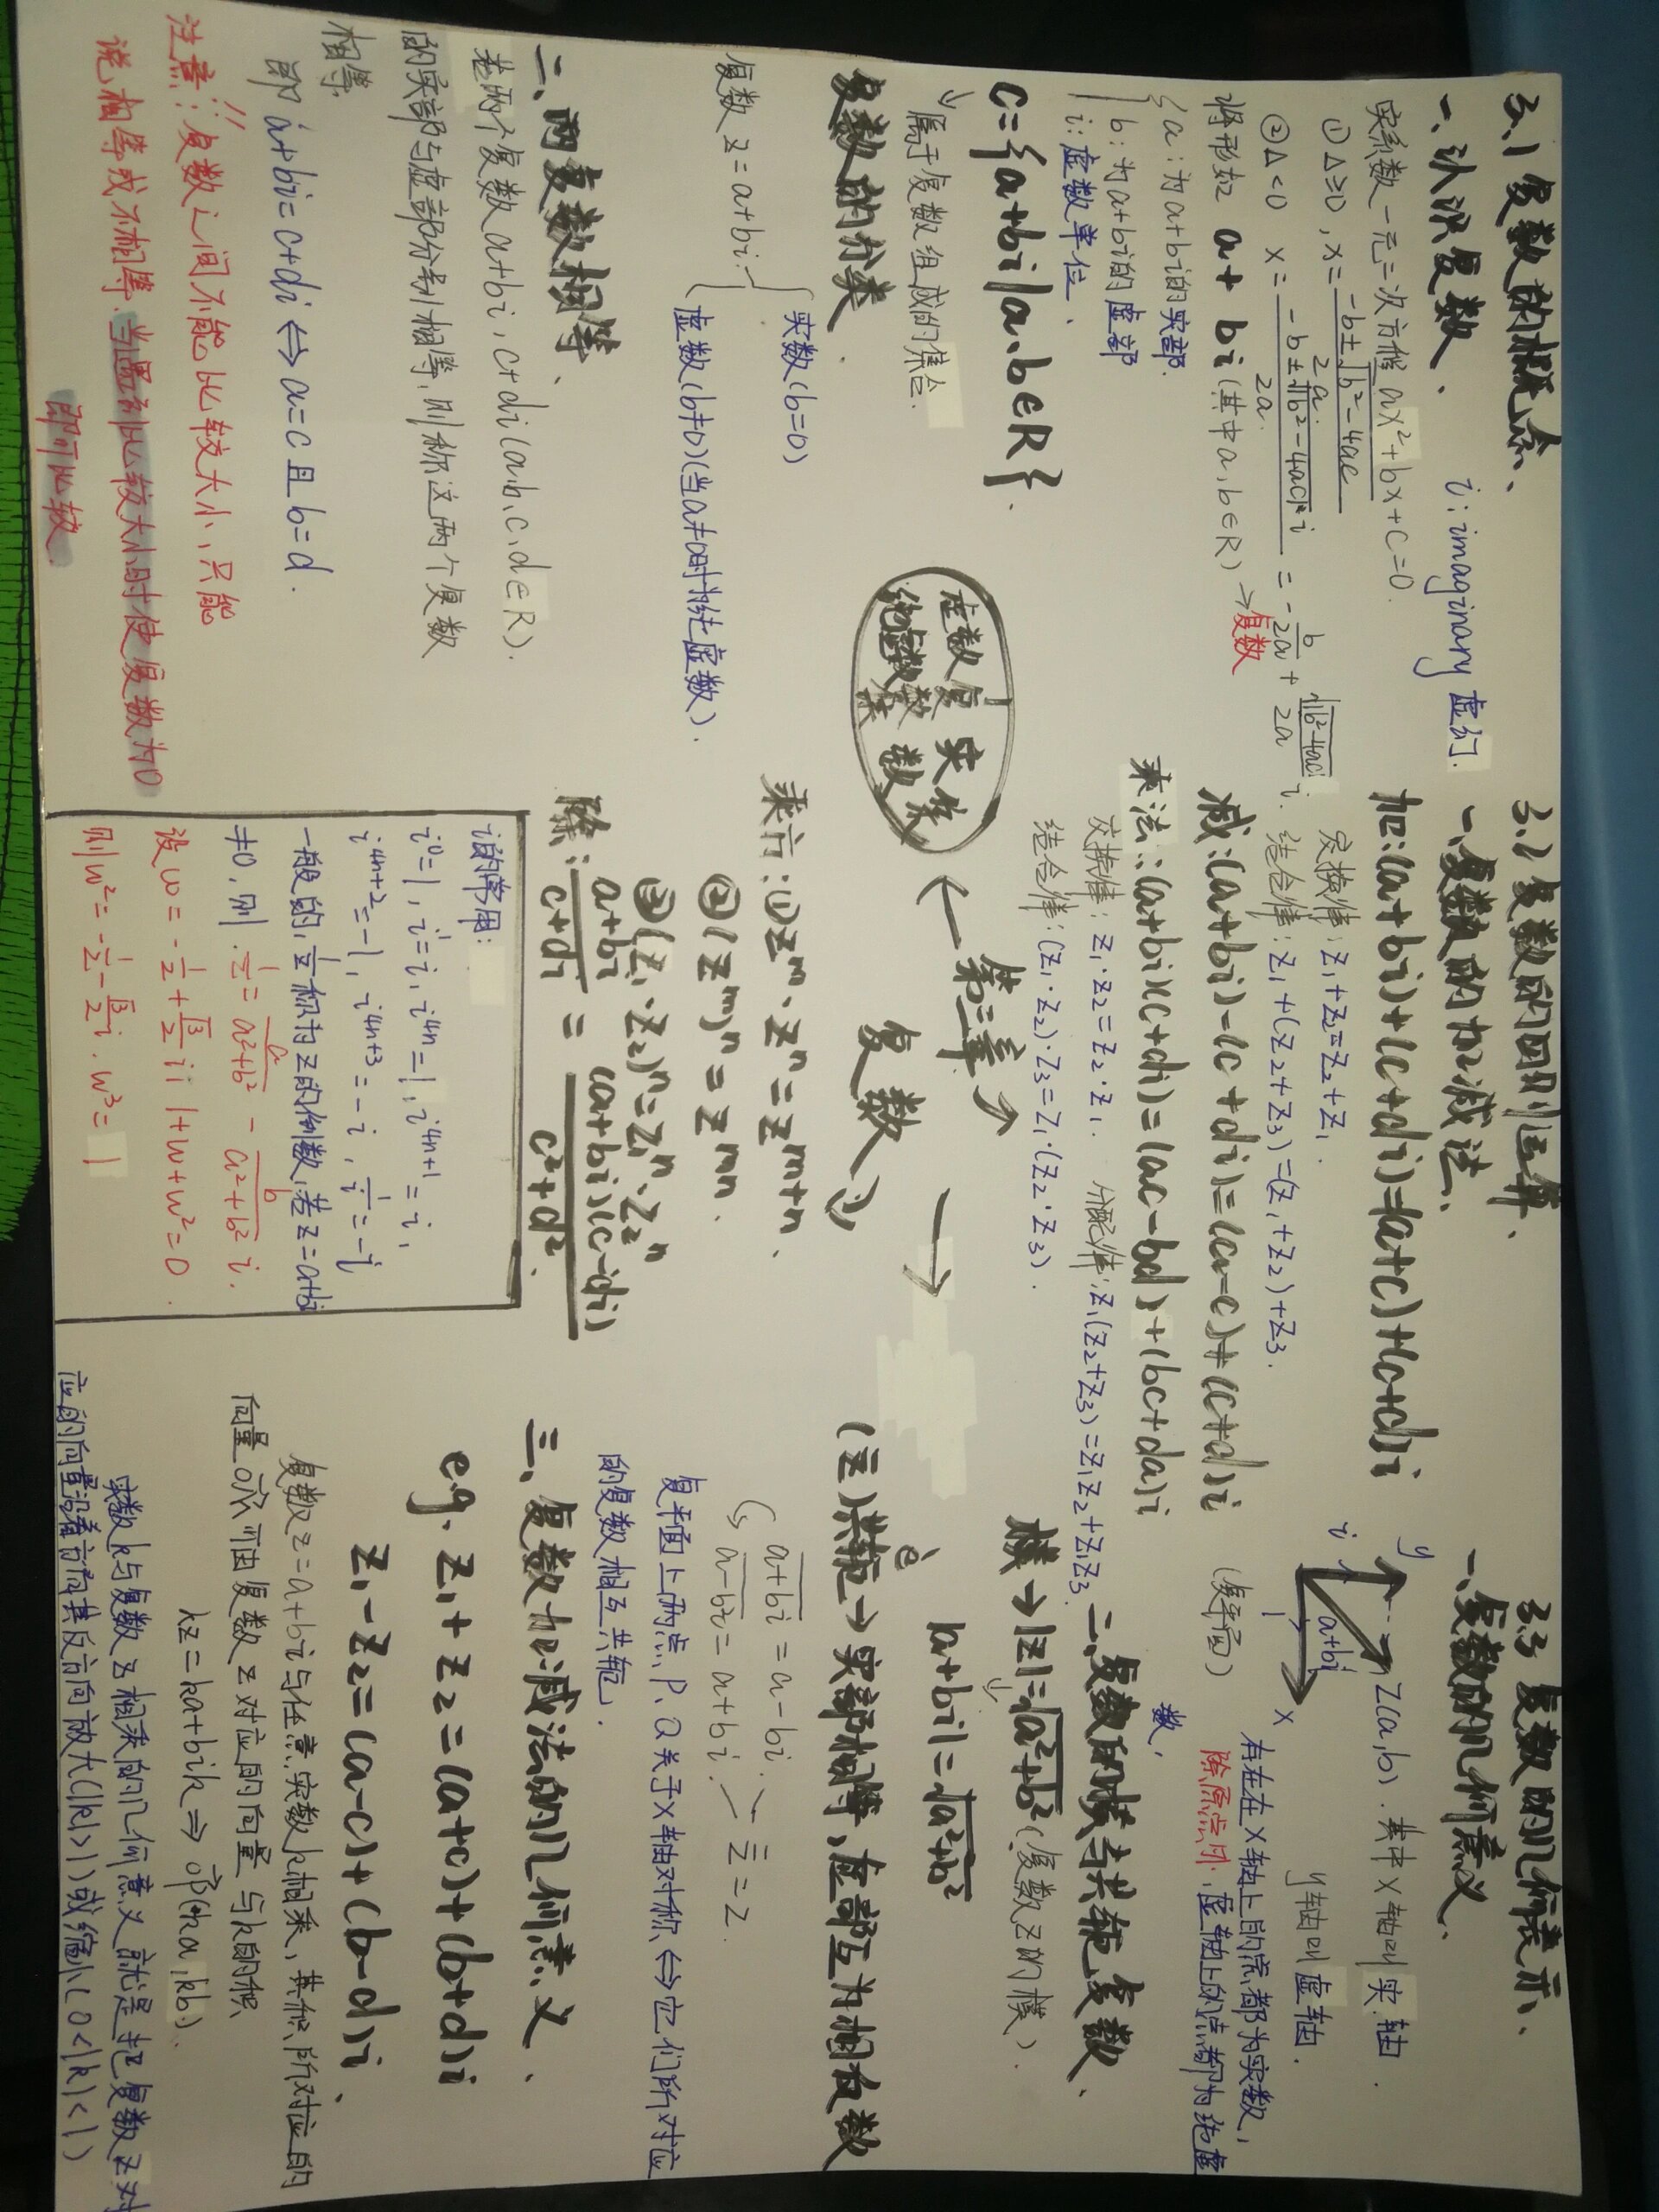 3.1 复数的概念、
一、认识复数、 i: imaginary 虚幻.
实系数一元二次方程 ax²+bx+c=0.
① Δ≥0, x= -b±√b²-4ac / 2a
② Δ<0 x= -b±√|b²-4ac|·i / 2a = -b/2a + √|b²-4ac| / 2a i.
将形如 a+bi (其中a,b∈R) → 复数
a: 为a+bi的实部.
b: 为a+bi的虚部
i: 虚数单位.
C={a+bi|a,b∈R}.
↓ 属于复数组成的集合.
复数的分类.
复数 z=a+bi:
实数 (b=0)
虚数 (b≠0) (当a=0时为纯虚数).
虚数 复 实
纯虚数 数 数
集 集
二、两复数相等、
若两个复数 a+bi, c+di (a,b,c,d∈R).
的实部与虚部分别相等,则称这两个复数
相等,
即 a+bi=c+di ⇔ a=c 且 b=d.
注意: 复数之间不能比较大小,只能
说相等或不相等.当要比较大小时使复数为0
即可比较.
3.2 复数的四则运算、
一、复数的加减法、
加:(a+bi)+(c+di)=(a+c)+(c+d)i
交换律: z₁+z₂=z₂+z₁.
结合律: z₁+(z₂+z₃)=(z₁+z₂)+z₃.
减:(a+bi)-(c+di)=(a-c)+(c+d)i
乘法:(a+bi)(c+di)=(ac-bd)+(bc+da)i
交换律: z₁·z₂=z₂·z₁. 分配律: z₁(z₂+z₃)=z₁z₂+z₁z₃.
结合律: (z₁·z₂)·z₃=z₁·(z₂·z₃).
← 第三章 →
复数
→
乘方: ① zᵐ·zⁿ=zᵐ⁺ⁿ、
② (zᵐ)ⁿ=zᵐⁿ.
③ (z₁·z₂)ⁿ=z₁ⁿ·z₂ⁿ
除: a+bi / c+di = (a+bi)(c-di) / c²+d².
i的常用:
i⁰=1, i¹=i, i⁴ⁿ=1, i⁴ⁿ⁺¹=i,
i⁴ⁿ⁺²=-1, i⁴ⁿ⁺³=-i, 1/i=-i
一般的, 1/z 称为z的倒数,若z=a+bi
≠0,则 1/z = a/a²+b² - b/a²+b² i.
设w=-1/2+√3/2 i; 1+w+w²=0.
则w²=-1/2-√3/2 i. w³=1
3.3 复数的几何表示、
一、复数的几何意义、
y
Z(a,b). 其中 x轴叫实轴
i a+bi y轴叫虚轴.
1 x
(复平面) 有在在x轴上的点都为实数,
除原点外,虚轴上的点都为纯虚
数,
二、复数的模与共轭复数、
模→|z|=√a²+b² (复数z的模).
↓
|a+bi|=√a²+b²
(z̄) 共轭→实部相等,虚部互为相反数
è
a+bi = a-bi. > z̿=z.
a-bi = a+bi.
复平面上两点P、Q关于x轴对称⇔它们所对应
的复数相互共轭.
三、复数加减法的几何意义、
eg. z₁+z₂=(a+c)+(b+d)i
z₁-z₂=(a-c)+(b-d)i、
复数z=a+bi与任意实数k相乘,其积所对应的
向量OP可由复数z对应的向量与k的积
kz=ka+bik ⇒ OP(ka,kb).
实数k与复数z相乘的几何意义就是把复数z对
应的向量沿着方向其反方向放大(|k|>1)或缩小(0<|k|<1)